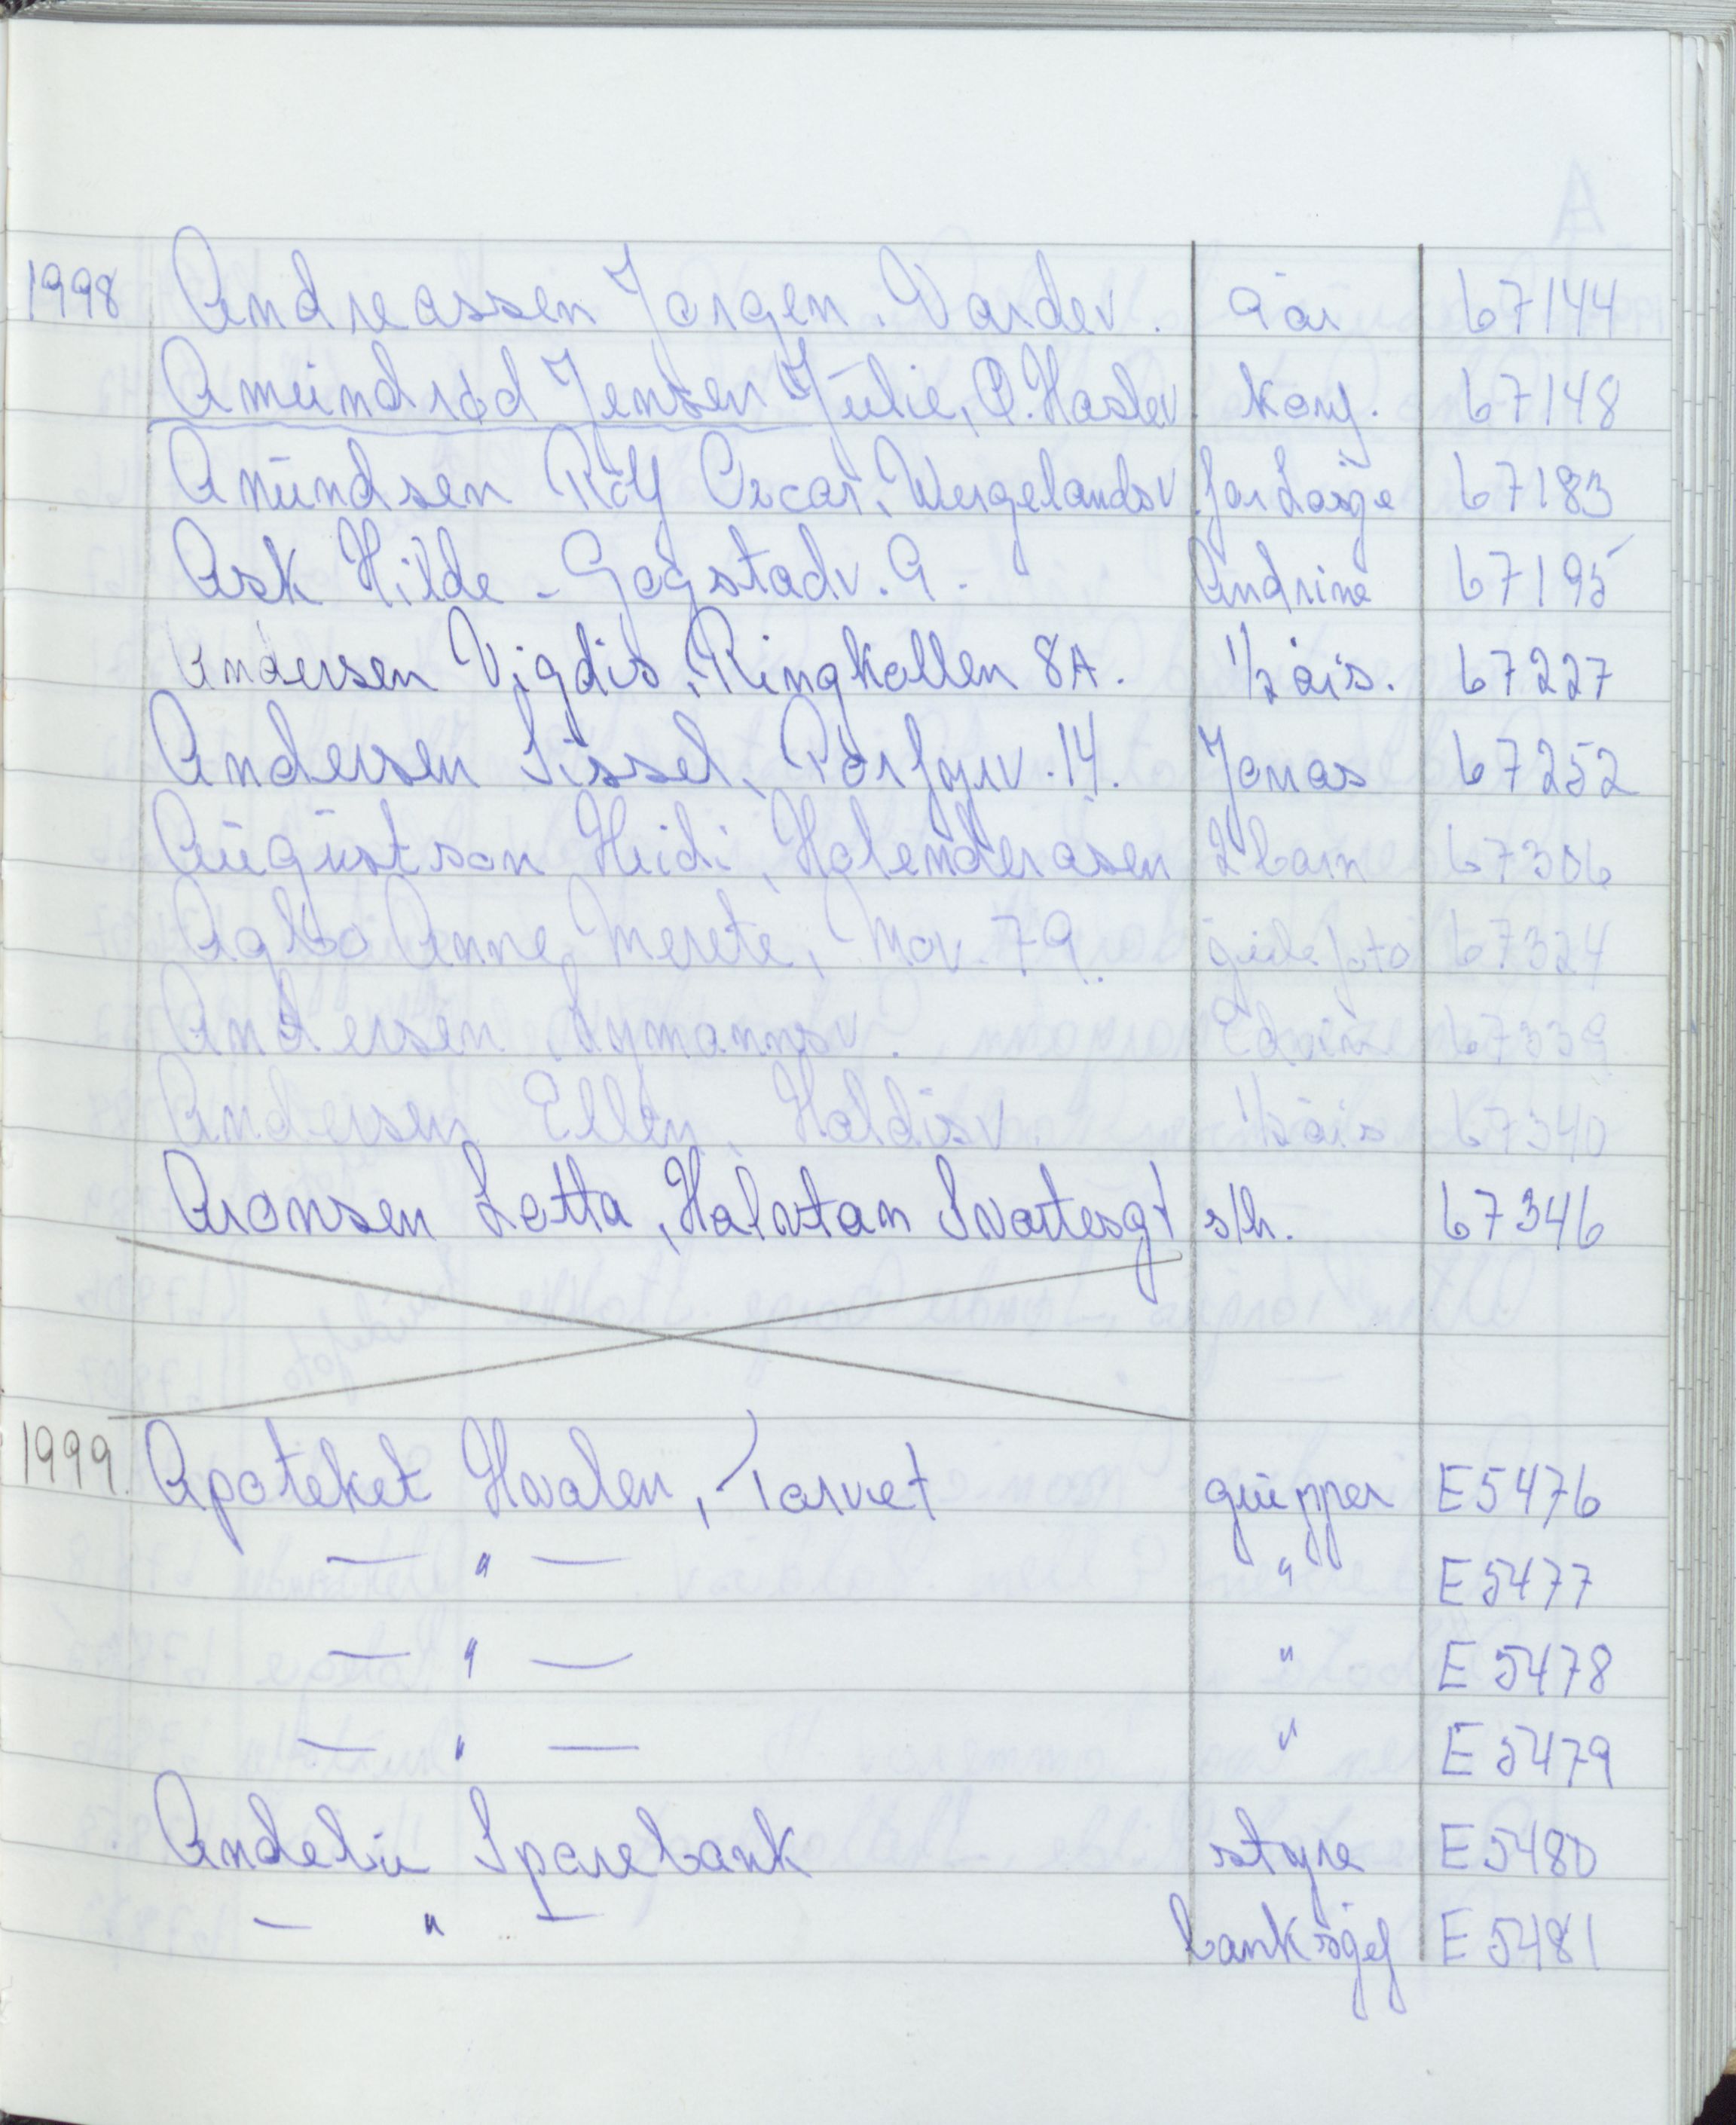 1998 Andreassen Jørgen. Vardev. 9 år 67144
Amundrød Jensen Julie, Ø. Haslev. konf. 67148
Amundsen Rolf Oscar, Wergelandsv. farldsge 67183
Ask Hilde - Gogstadv. 9. Andrine 67195
Andersen Vigdis, Ringkollen 8A. 1/2 års. 67227
Andersen Sissel, Porfyrv. 14. Jonas 67252
Augustson Heidi, Holenderåsen 2 barn 67306
Agbo Anne Merete, Mov. 79. gullfoto 67324
Andersen Nymannsv. Edvin 67339
Andersen Ellen, Haldisv. 1/2 års 67340
Aronsen Lotta, Halvdan Svartesgt s/h. 67346
1999. Apoteket Hvalen, Torvet grupper E5476
— " — " E5477
— " — " E5478
— " — " E5479
Andebu Sparebank styre E5480
— " — banksjef E5481